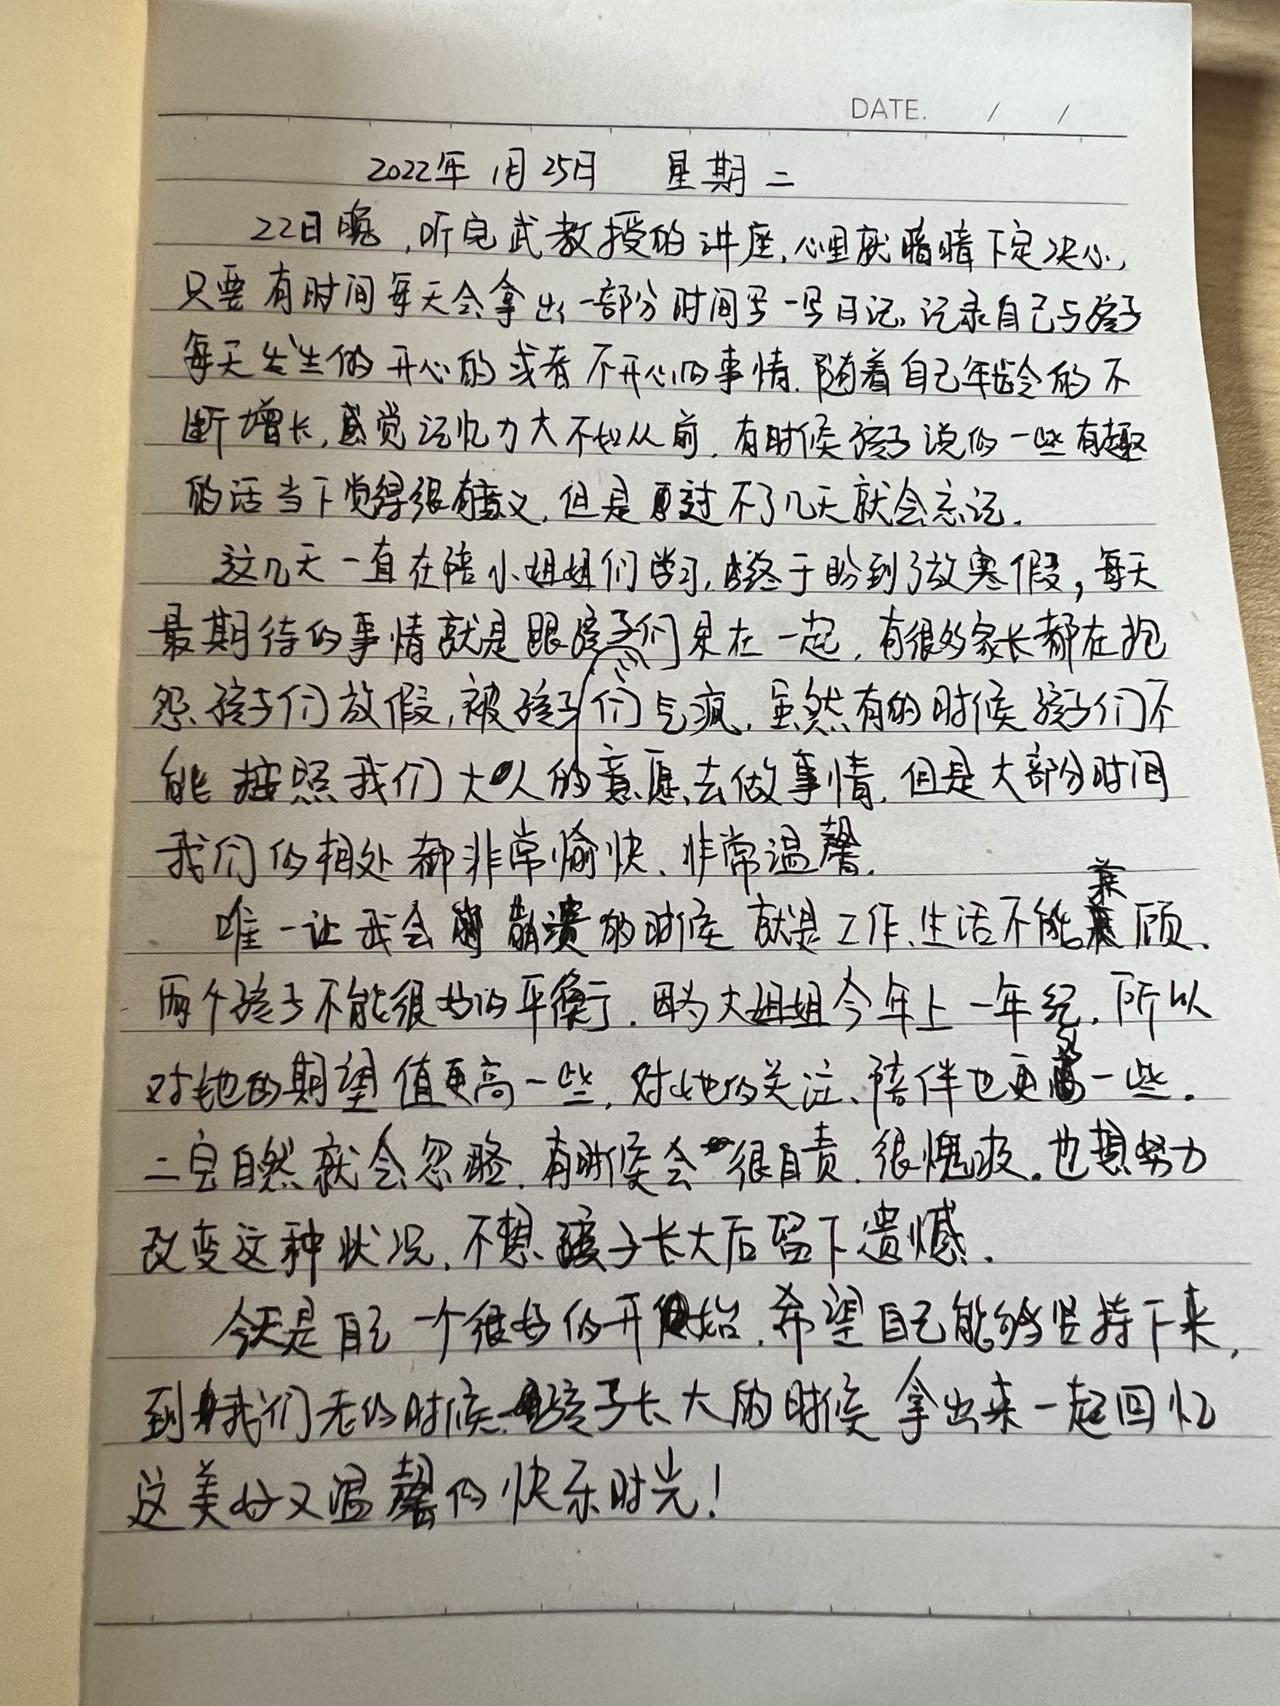 DATE. / /
2022年1月25日 星期二
22日晚，听完武教授的讲座，心里就暗暗下定决心，
只要有时间每天会拿出一部分时间写一写日记，记录自己与孩子
每天发生的开心的或者不开心的事情。随着自己年龄的不
断增长，感觉记忆力大不如从前，有时候孩子说的一些有趣
的话当下觉得很有意义，但是过不了几天就会忘记。
这几天一直在陪小姐姐们学习，终于盼到了放寒假，每天
最期待的事情就是跟孩子们呆在一起，有很多家长都在抱
怨孩子们放假，被孩子们气疯，虽然有的时候孩子们不
能按照我们大人的意愿去做事情，但是大部分时间
我们的相处都非常愉快、非常温馨。
唯一让我会崩溃的时候就是工作、生活不能兼顾、
两个孩子不能很好的平衡，因为大姐姐今年上一年纪，所以
对她的期望值更高一些，对她的关注、陪伴也更多一些。
二宝自然就会忽略，有时候会很自责，很愧疚。也想努力
改变这种状况，不想孩子长大后留下遗憾。
今天是自己一个很好的开始，希望自己能够坚持下来，
到我们老的时候、孩子长大的时候拿出来一起回忆
这美好又温馨的快乐时光！